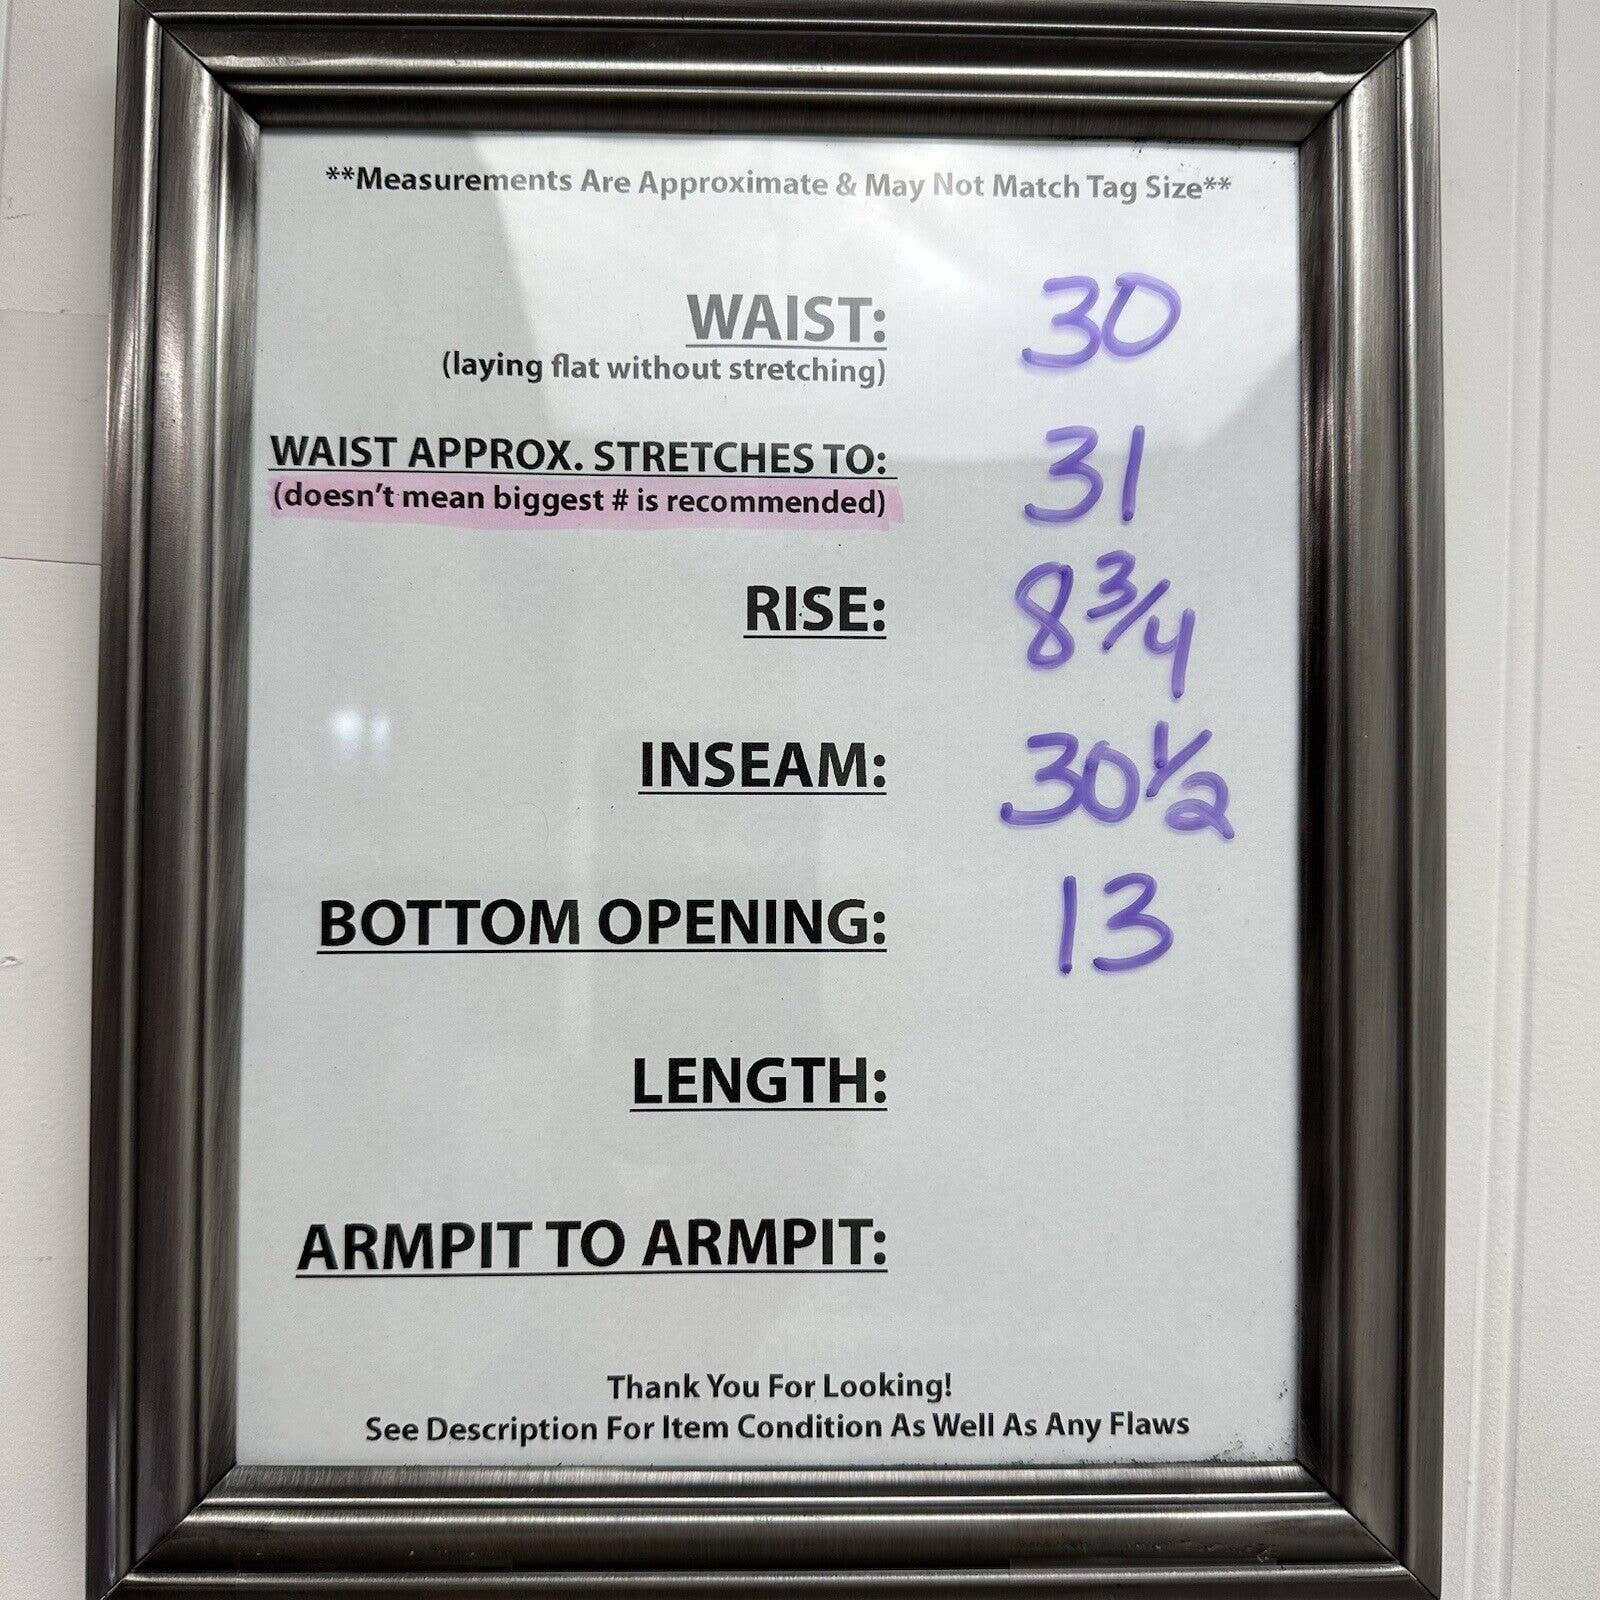 **Measurements Are Approximate & May Not Match Tag Size**
WAIST: 30
(laying flat without stretching)
WAIST APPROX. STRETCHES TO: 31
(doesn't mean biggest # is recommended)
RISE: 8 3/4
INSEAM: 30 1/2
BOTTOM OPENING: 13
LENGTH:
ARMPIT TO ARMPIT:
Thank You For Looking!
See Description For Item Condition As Well As Any Flaws